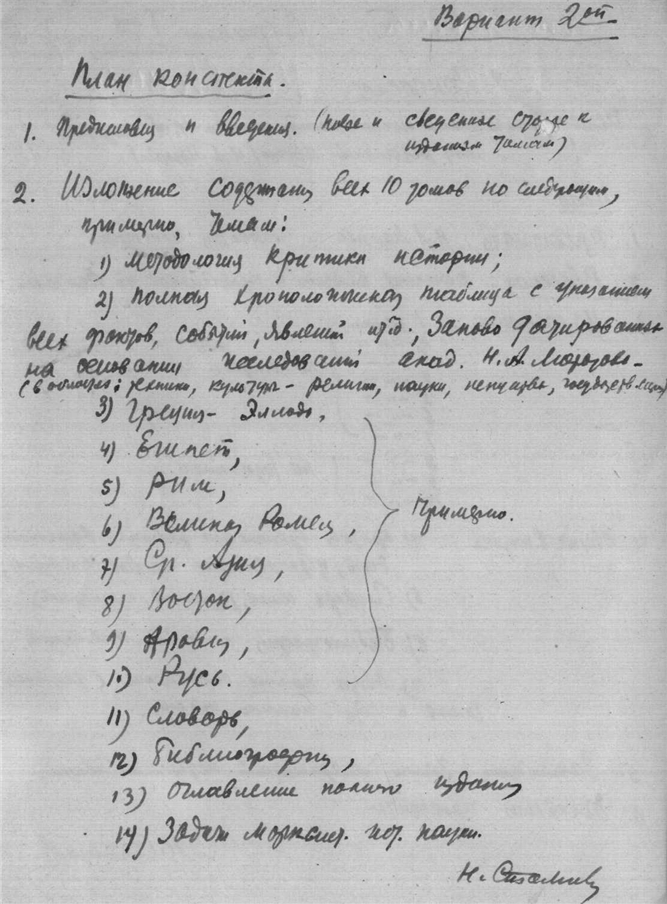 Вариант 2ой
План конспекта.
1. Предисловия и введения. (новое и сведенное старое к
изданиям томам)
2. Изложение содержания всех 10 томов по следующим,
примерно, темам:
1) Методология критики истории;
2) Полная хронологическая таблица с указанием
всех фактов, событий, явлений и т.д., заново датированных
на основании исследований акад. Н.А. Морозова –
(в областях: техники, культуры – религии, науки, искусства,
3) Греция – Эллада.
4) Египет,
5) Рим,
6) Великая Ромея,
7) Ср. Азия,
8) Восток,
9) Аравия,
10) Русь.
Примерно.
11) Словарь,
12) Библиография,
13) Оглавление полного издания
14) Задачи марксист. ист. науки.
Н.